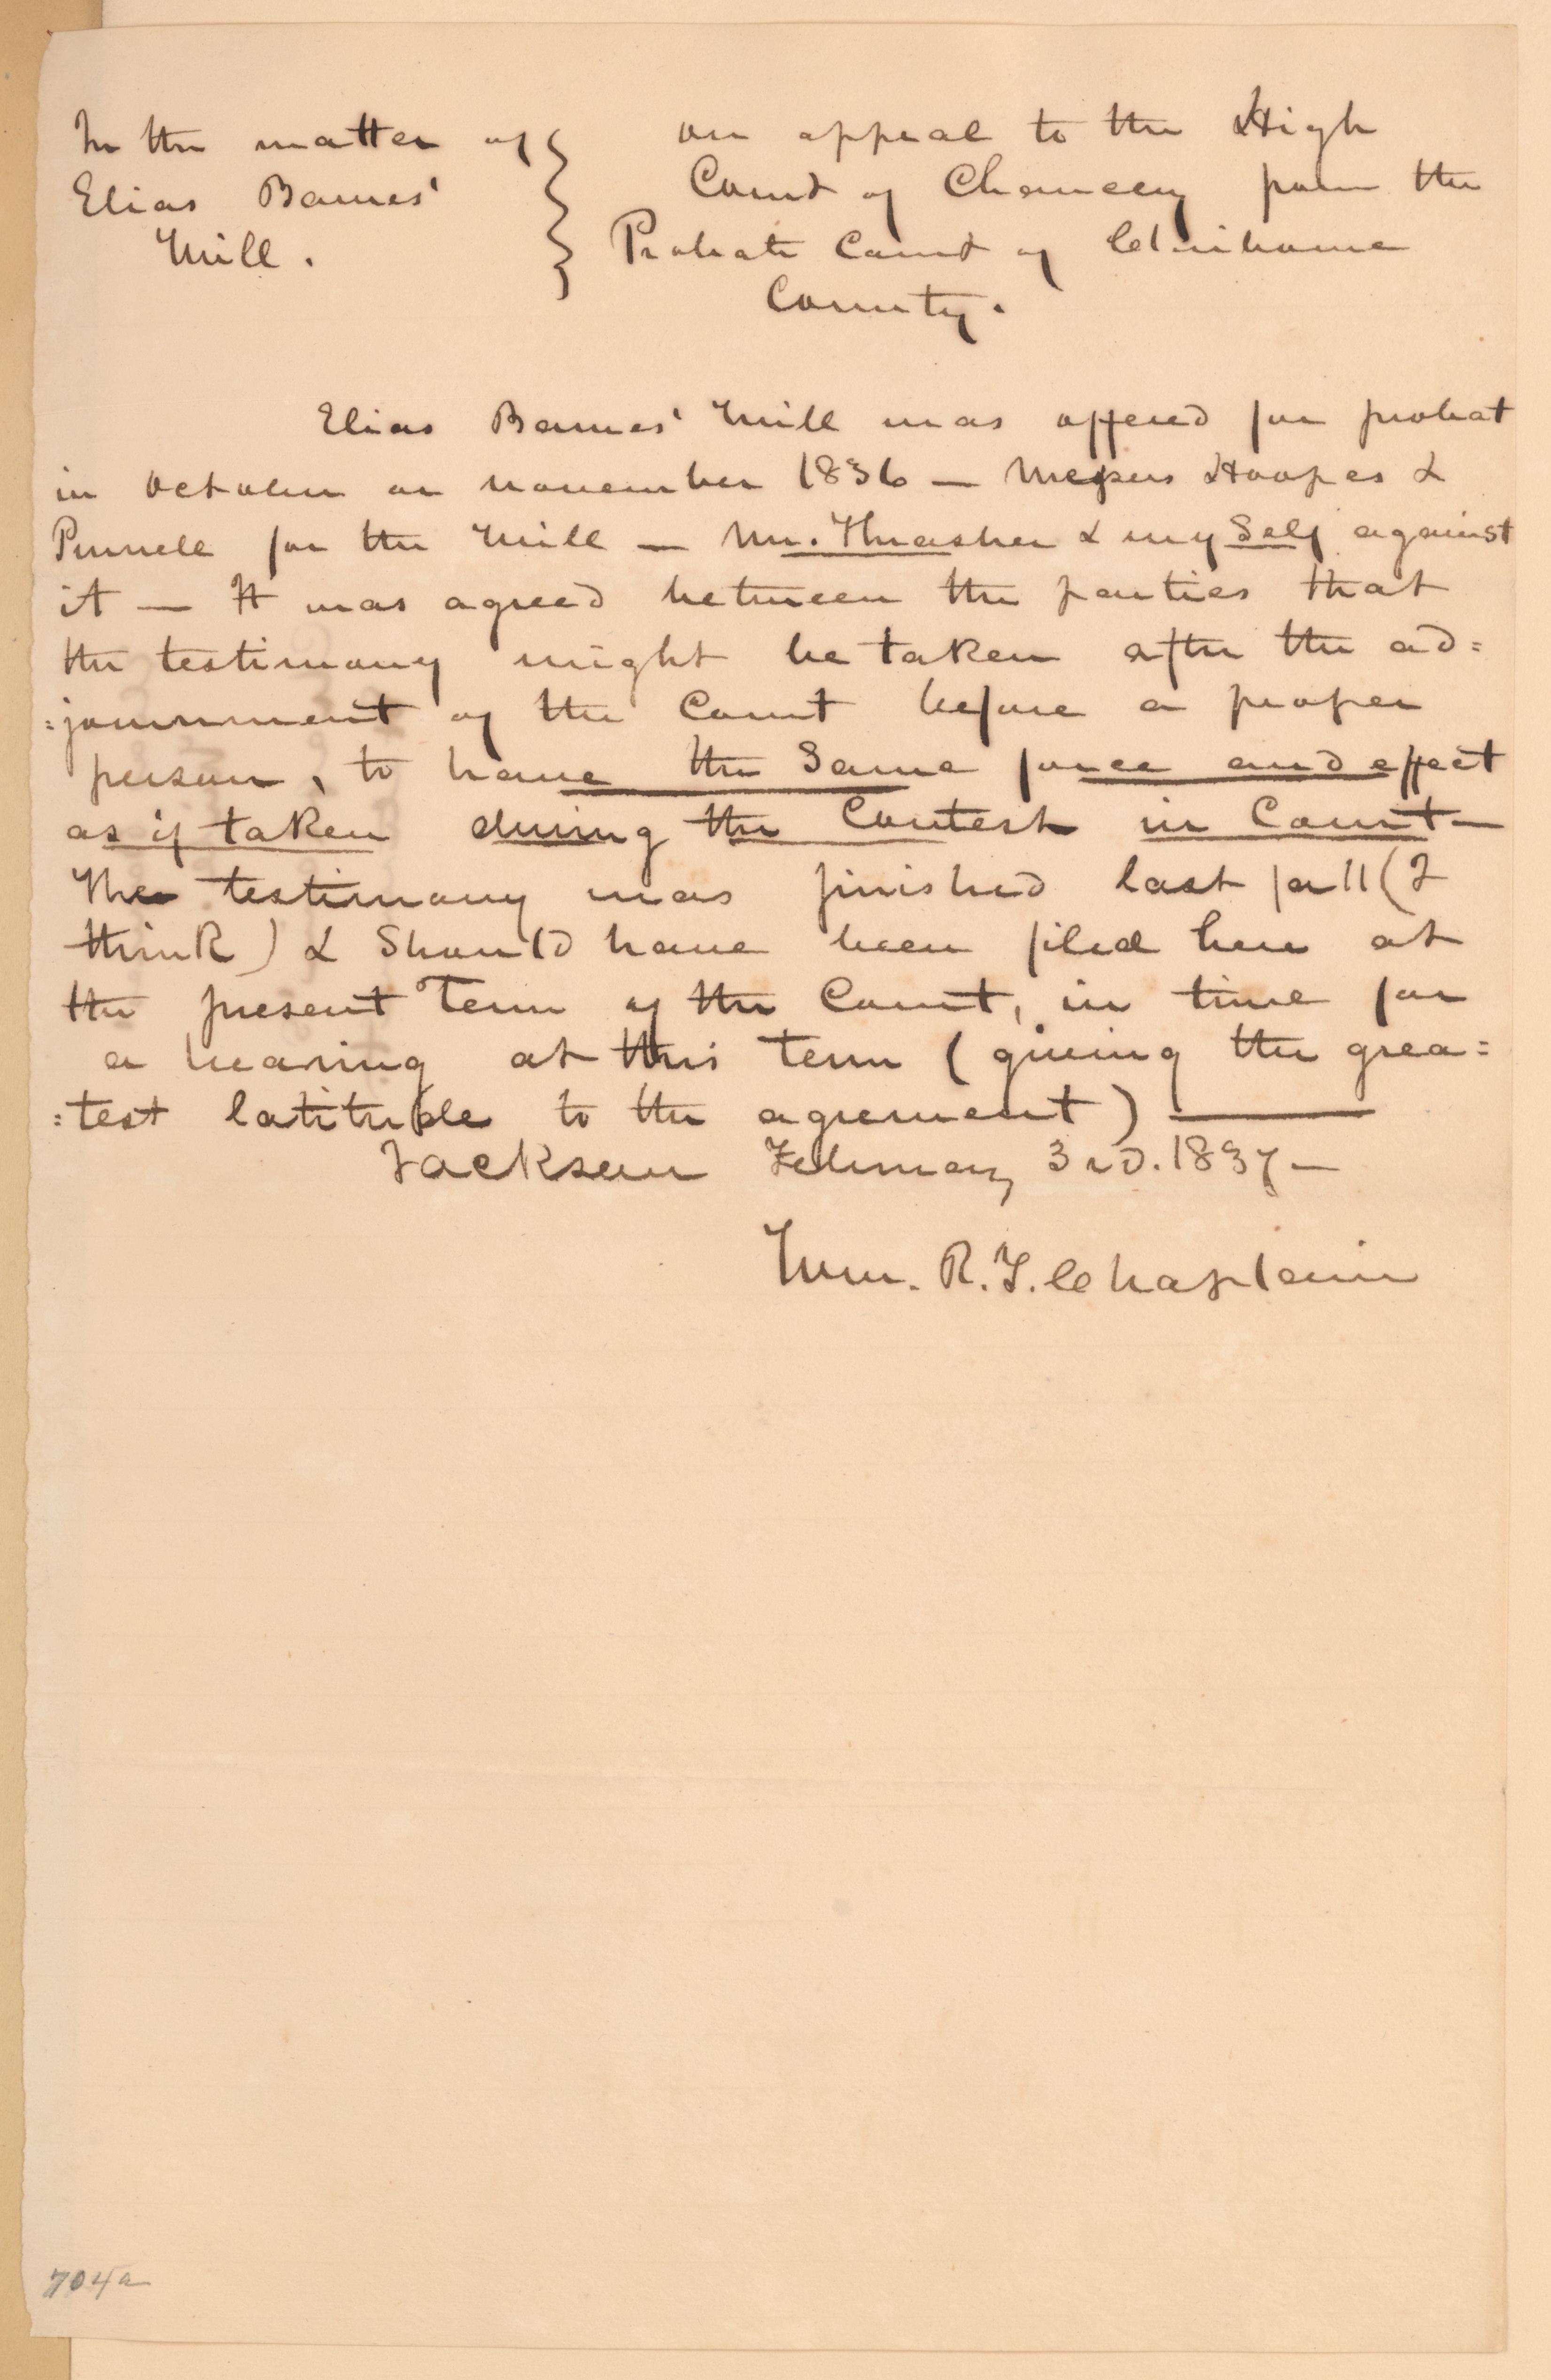 In the matter of } on appeal to the High
Elias Barnes' } Court of Chancery from the
Will. } Probate Court of Claiborne
County.
Elias Barnes' Will was offered for probat
in october or november 1836 — Messrs Hoopes &
Pinnell for the Will — Mr. Thrasher & my Self against
it — It was agreed between the parties that
the testimony might be taken after the ad=
=journment of the Court before a proper
person, to have the Same force and effect
as if taken during the Contest in Court —
The testimony was finished last fall (I
think) & Should have been filed here at
the present Term of the Court, in time for
a hearing at this term (giving the grea=
=test latitude to the agrement) —
Jackson February 3rd. 1837 —
Wm. R. T. Chaplain
704a